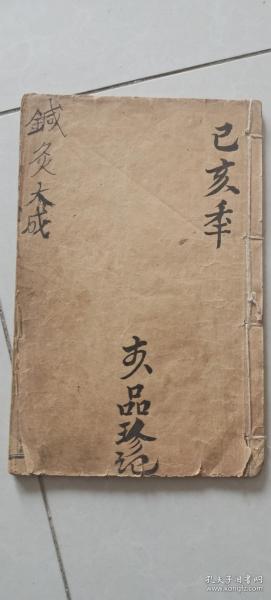 己亥年
鍼灸大成
品珍记
孔夫子旧书网